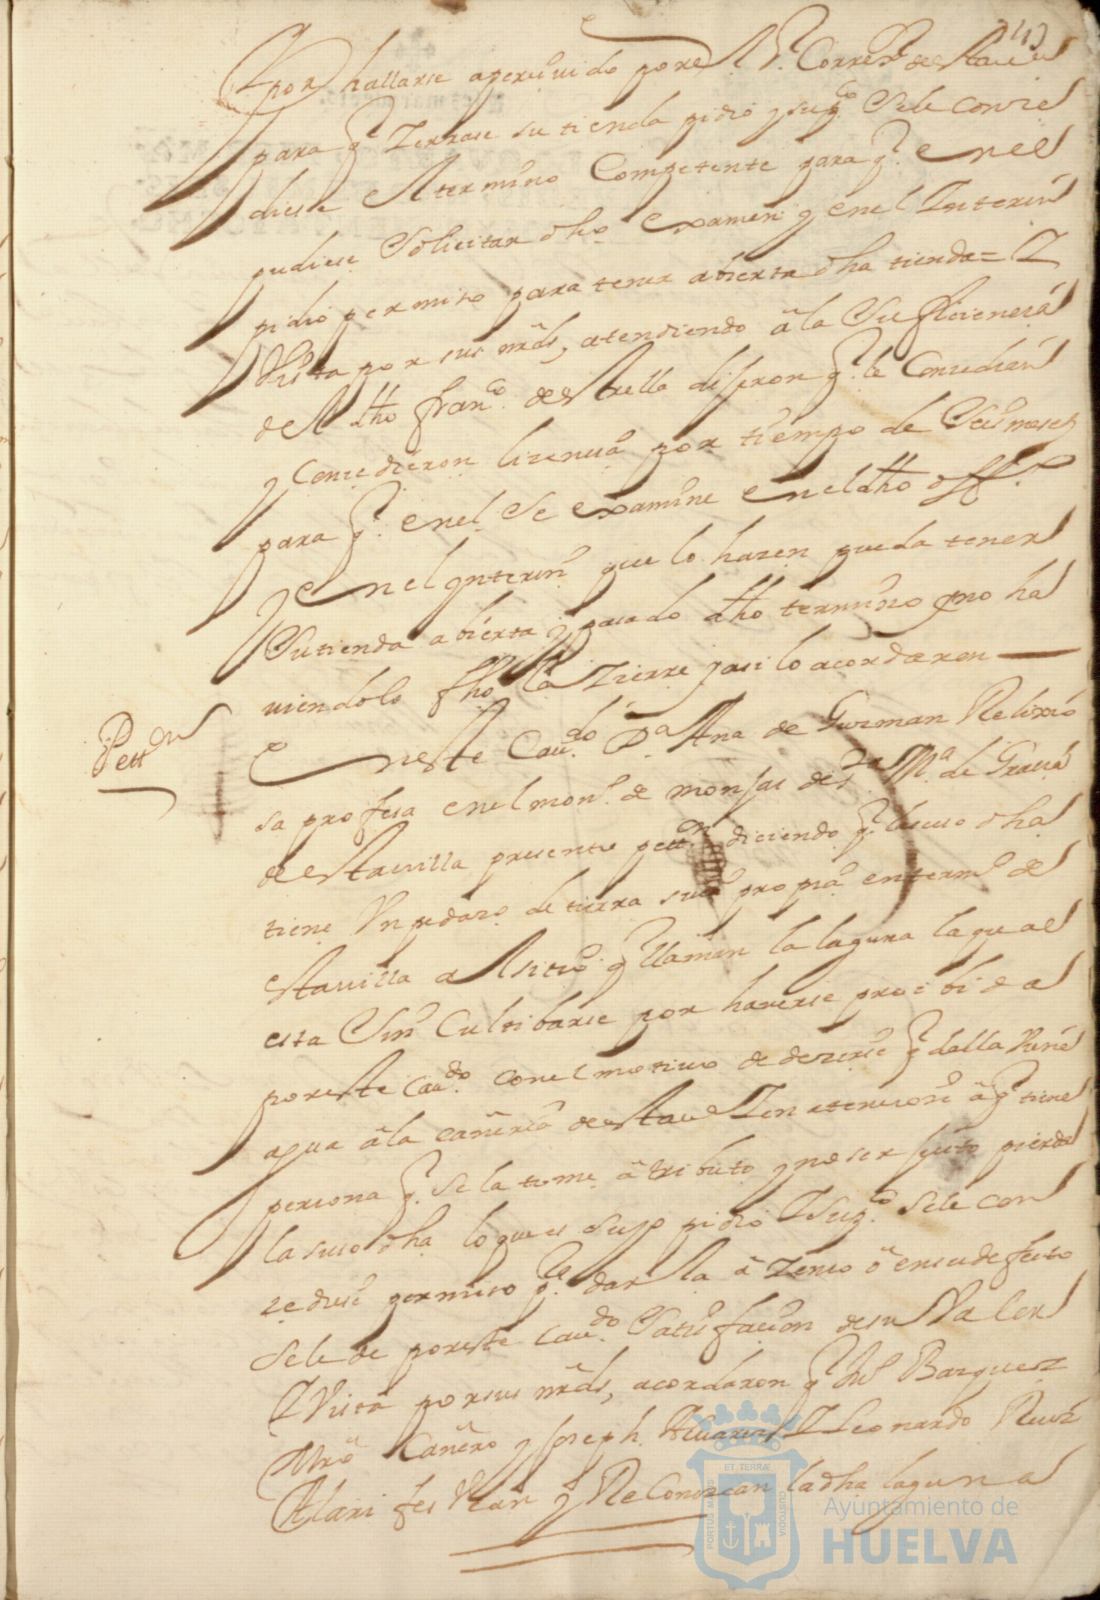 243
y por hallarse apersiuido por el Sr. Correxr. de sta uilla
para q. Zerrase su tienda pidio y supco. Se le conze
diese el termino Competente para q. en el
pudiese Solicitar dho examen y en el Interin
pidio permiso para tener abierta dha tienda = Y
Vista por sus mrds, atendiendo â la Suficiencia
del dho franco. de estrella dijeron q. le Concedian
y Concedieron lizencia por tiempo de Seis meses
para q. en el Se examine en el dho offo.
y en el ynterin que lo hazen pueda tener
Su tienda abierta y pasado dho termino y no ha
uiendolo fho la Zierre y asi lo acordaron
Petton
En este Caudo. Da Ana de Guzman Relixio
sa profesa en el mono. de monjas de sta. Ma. de Gracia
de esta uilla presento petton diciendo q. la suso dha
tiene Un pedazo de tierra suia propia en termo de
esta uilla a el sitio q. llaman la laguna la qual
esta Sin Cultibarse por hauerse proibido
por este Caudo. con el motiuo de dezirse q. dalla Viene
agua â la cañeria de esta uª Y en atencion â q. tiene
persona q. se la tome â tributo y no ser justo pierda
la suso dha lo que es suyo pidio Y supco. se le con
zediese permiso pa. darla â Zenso ô en su defecto
Se le de por este Caudo. Satisfacion de su Valor
Y Vista por sus mrds, acordaron q. Blas Bazquez
Mro Cañero y Joseph Aluarez Y Leonardo Ruiz
Alarifes Vean y ReConozcan la dha laguna
ET TERRÆ
PORTUS MARIS
CUSTODIA
Ayuntamiento de
HUELVA